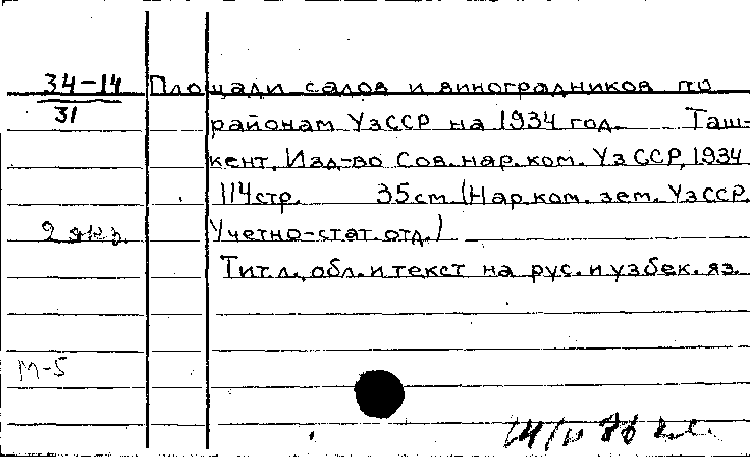 34-14 Площади садов и виноградников по
31
районам УзССР на 1934 год. Таш-
кент, Изд-во Сов.нар.ком. УзССР, 1934
114стр. 35см (Нар.ком.зем. УзССР.
2 экз. Учетно-стат.отд.)
Тит.л., обл. и текст на рус. и узбек. яз.
М-5